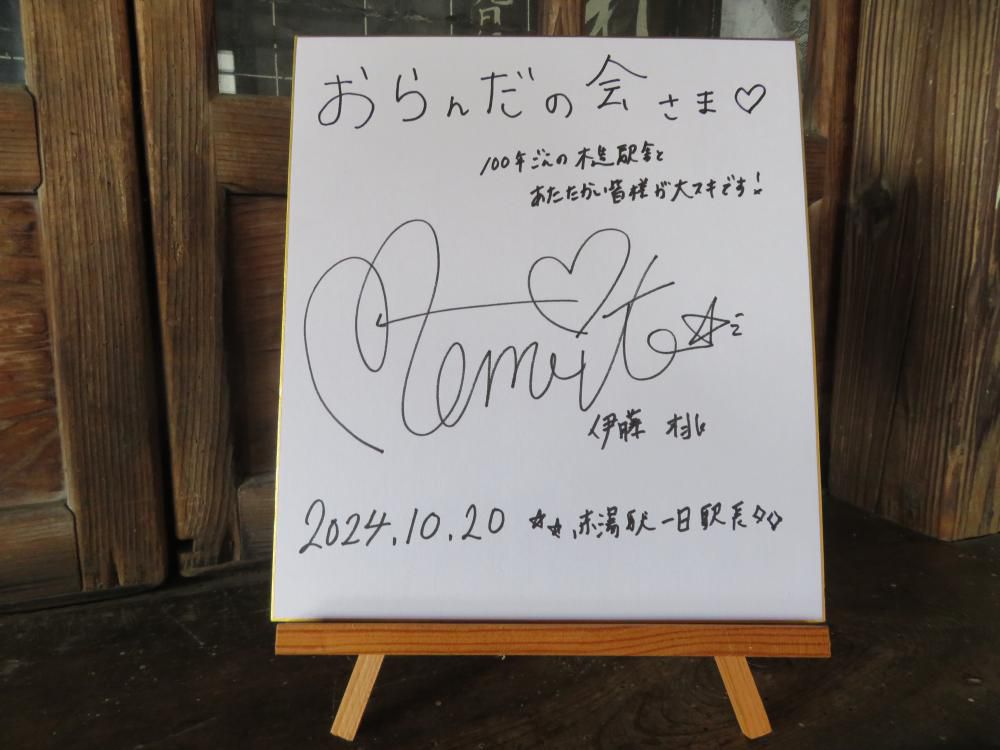 おらんだの会 さま♡
100年ごえの 木造駅舎と
あたたかい皆様が大スキです!
Momo Ito☆ミ
伊藤 桃
2024.10.20 ☆☆赤湯駅一日駅長◇◇